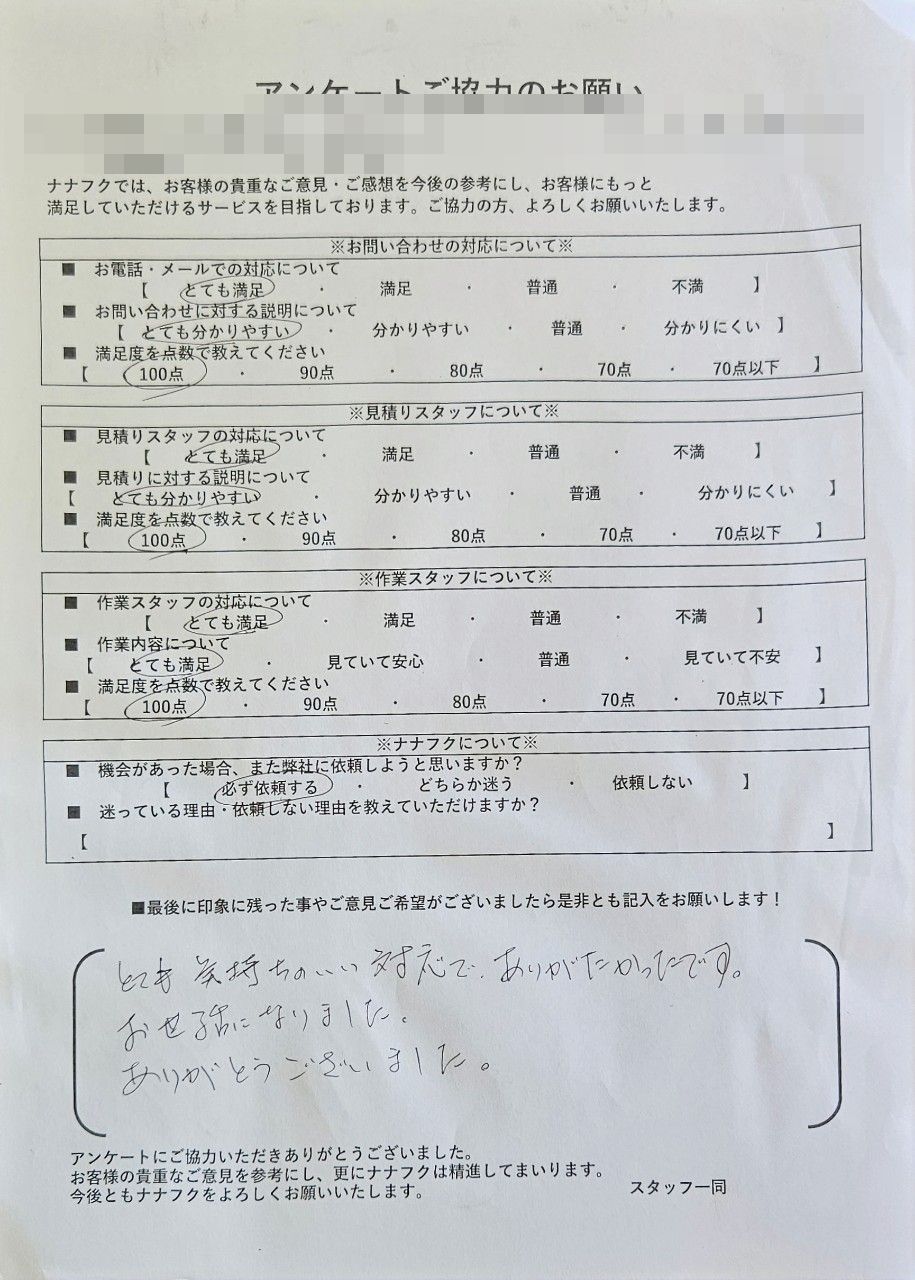 アンケートご協力のお願い
ナナフクでは、お客様の貴重なご意見・ご感想を今後の参考にし、お客様にもっと
満足していただけるサービスを目指しております。ご協力の方、よろしくお願いいたします。
※お問い合わせの対応について※
■ お電話・メールでの対応について
【 とても満足 ・ 満足 ・ 普通 ・ 不満 】
■ お問い合わせに対する説明について
【 とても分かりやすい ・ 分かりやすい ・ 普通 ・ 分かりにくい 】
■ 満足度を点数で教えてください
【 100点 ・ 90点 ・ 80点 ・ 70点 ・ 70点以下 】
※見積りスタッフについて※
■ 見積りスタッフの対応について
【 とても満足 ・ 満足 ・ 普通 ・ 不満 】
■ 見積りに対する説明について
【 とても分かりやすい ・ 分かりやすい ・ 普通 ・ 分かりにくい 】
■ 満足度を点数で教えてください
【 100点 ・ 90点 ・ 80点 ・ 70点 ・ 70点以下 】
※作業スタッフについて※
■ 作業スタッフの対応について
【 とても満足 ・ 満足 ・ 普通 ・ 不満 】
■ 作業内容について
【 とても満足 ・ 見ていて安心 ・ 普通 ・ 見ていて不安 】
■ 満足度を点数で教えてください
【 100点 ・ 90点 ・ 80点 ・ 70点 ・ 70点以下 】
※ナナフクについて※
■ 機会があった場合、また弊社に依頼しようと思いますか？
【 必ず依頼する ・ どちらか迷う ・ 依頼しない 】
■ 迷っている理由・依頼しない理由を教えていただけますか？
【 】
■最後に印象に残った事やご意見ご希望がございましたら是非とも記入をお願いします！
とても気持ちのいい対応で、ありがたかったです。
お世話になりました。
ありがとうございました。
アンケートにご協力いただきありがとうございました。
お客様の貴重なご意見を参考にし、更にナナフクは精進してまいります。
今後ともナナフクをよろしくお願いいたします。 スタッフ一同